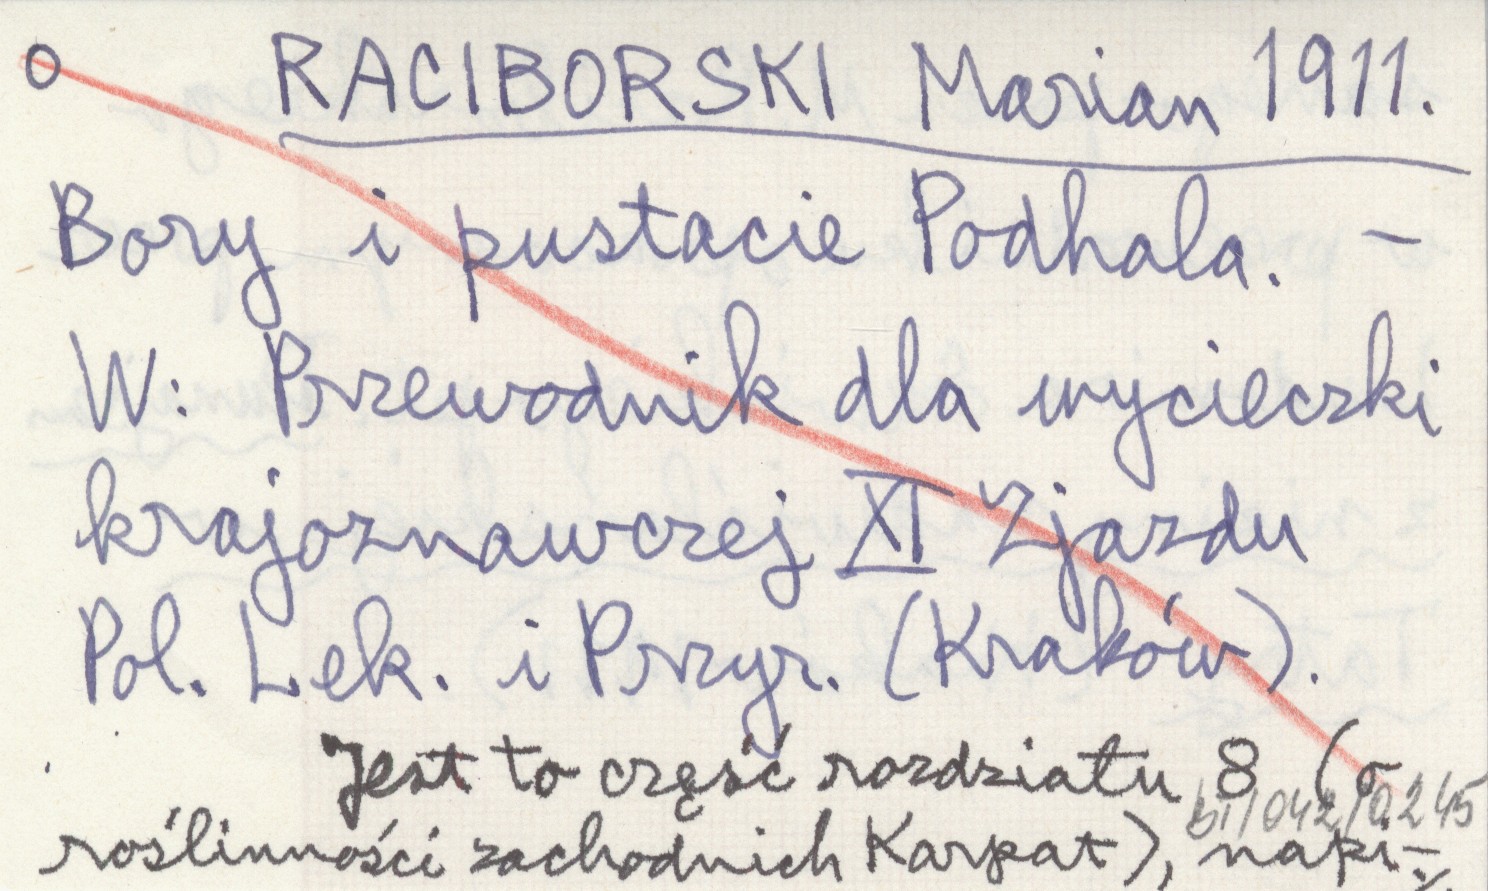 O RACIBORSKI Marian 1911.
Bory i pustacie Podhala. -
W: Przewodnik dla wycieczki
krajoznawczej XI Zjazdu
Pol. Lek. i Przyr. (Kraków).
Jest to część rozdziału 8 (o
BI/042/0245
roślinności zachodnich Karpat), napi-